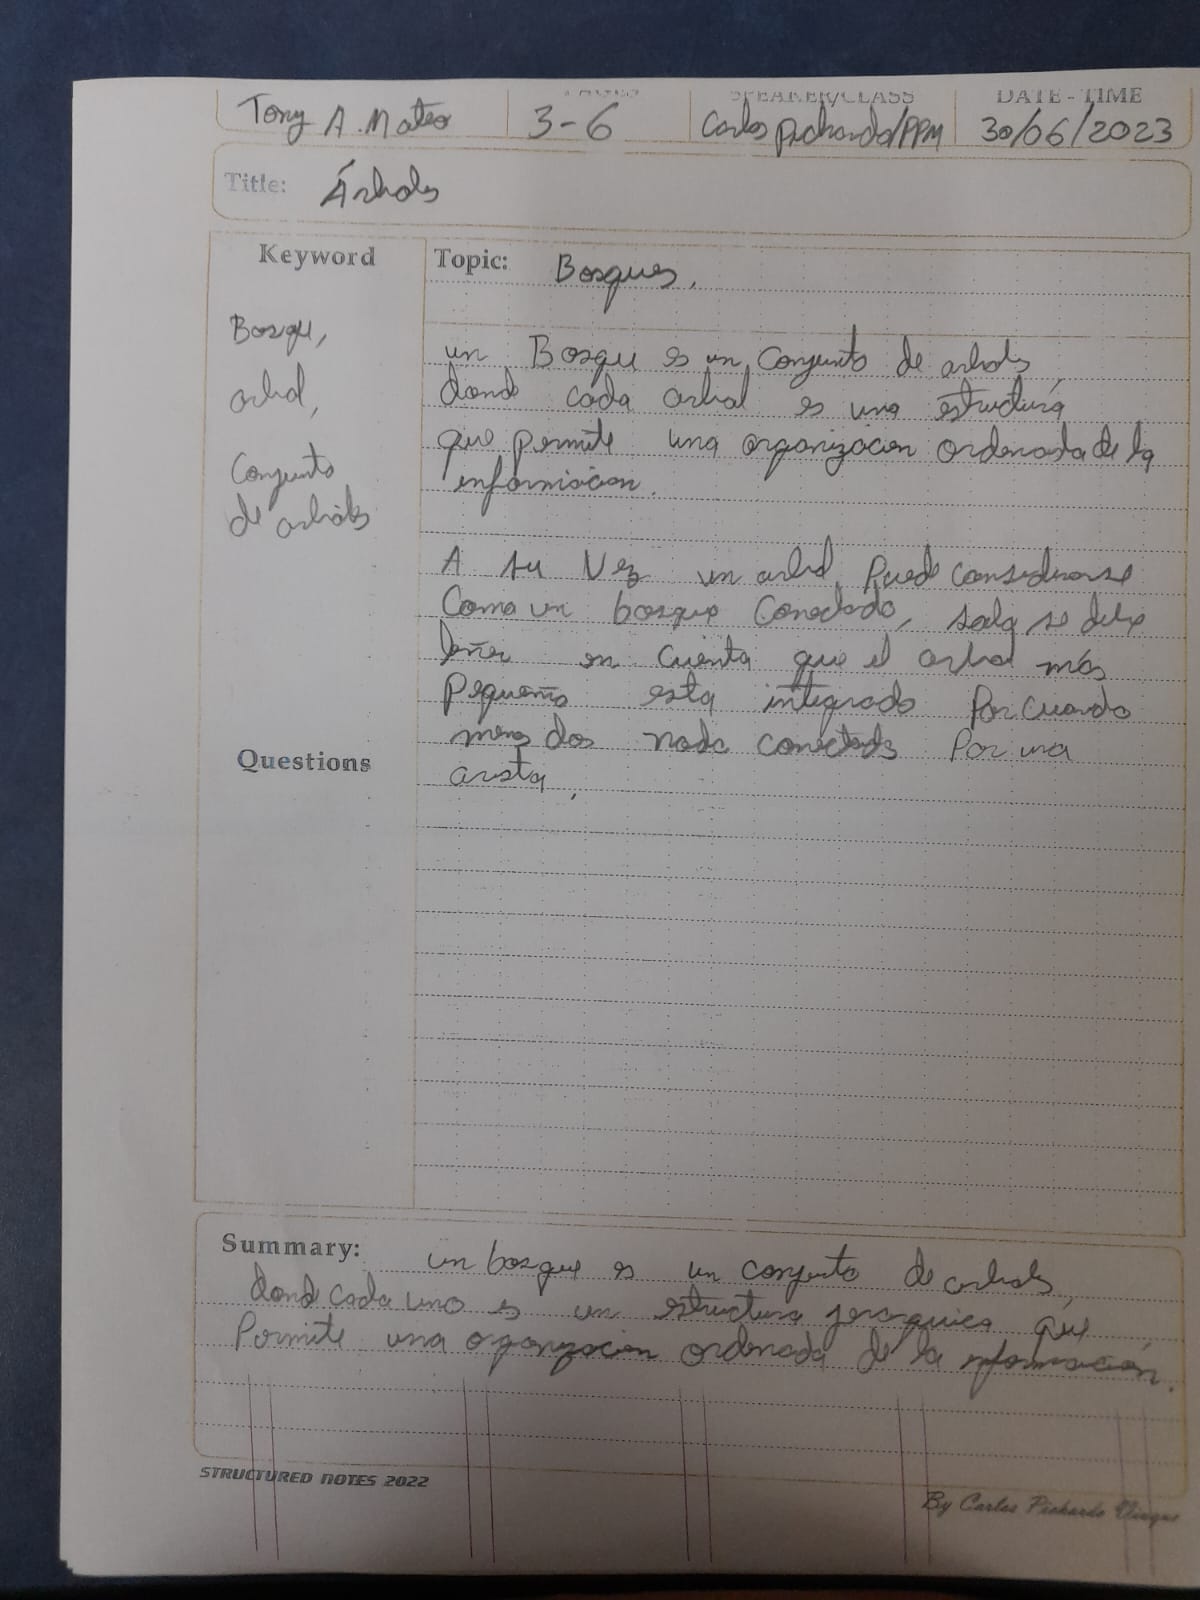 PAGES SPEAKER/CLASS DATE-TIME
Tony A. Mateo 3-6 Carlos Pichardo/PPM 30/06/2023
Title: Árboles
Keyword
Topic: Bosques.
Bosque,
arbol,
Conjunto
de arboles
un Bosque es un Conjunto de arboles,
donde cada arbol es una estructura
que permite una organizacion ordenada de la
informacion.
A su Vez un arbol, Puede considerarse
Como un bosque Conectado, solo se debe
tener en cuenta que el arbol más
pequeño esta integrado Por cuando
menos dos nodo conectados Por una
arista.
Questions
Summary: un bosque es un conjunto de arboles,
donde cada uno es un estructura jerarquica que
Permite una organizacion ordenada de la información.
STRUCTURED NOTES 2022
By Carlos Pichardo Viuque